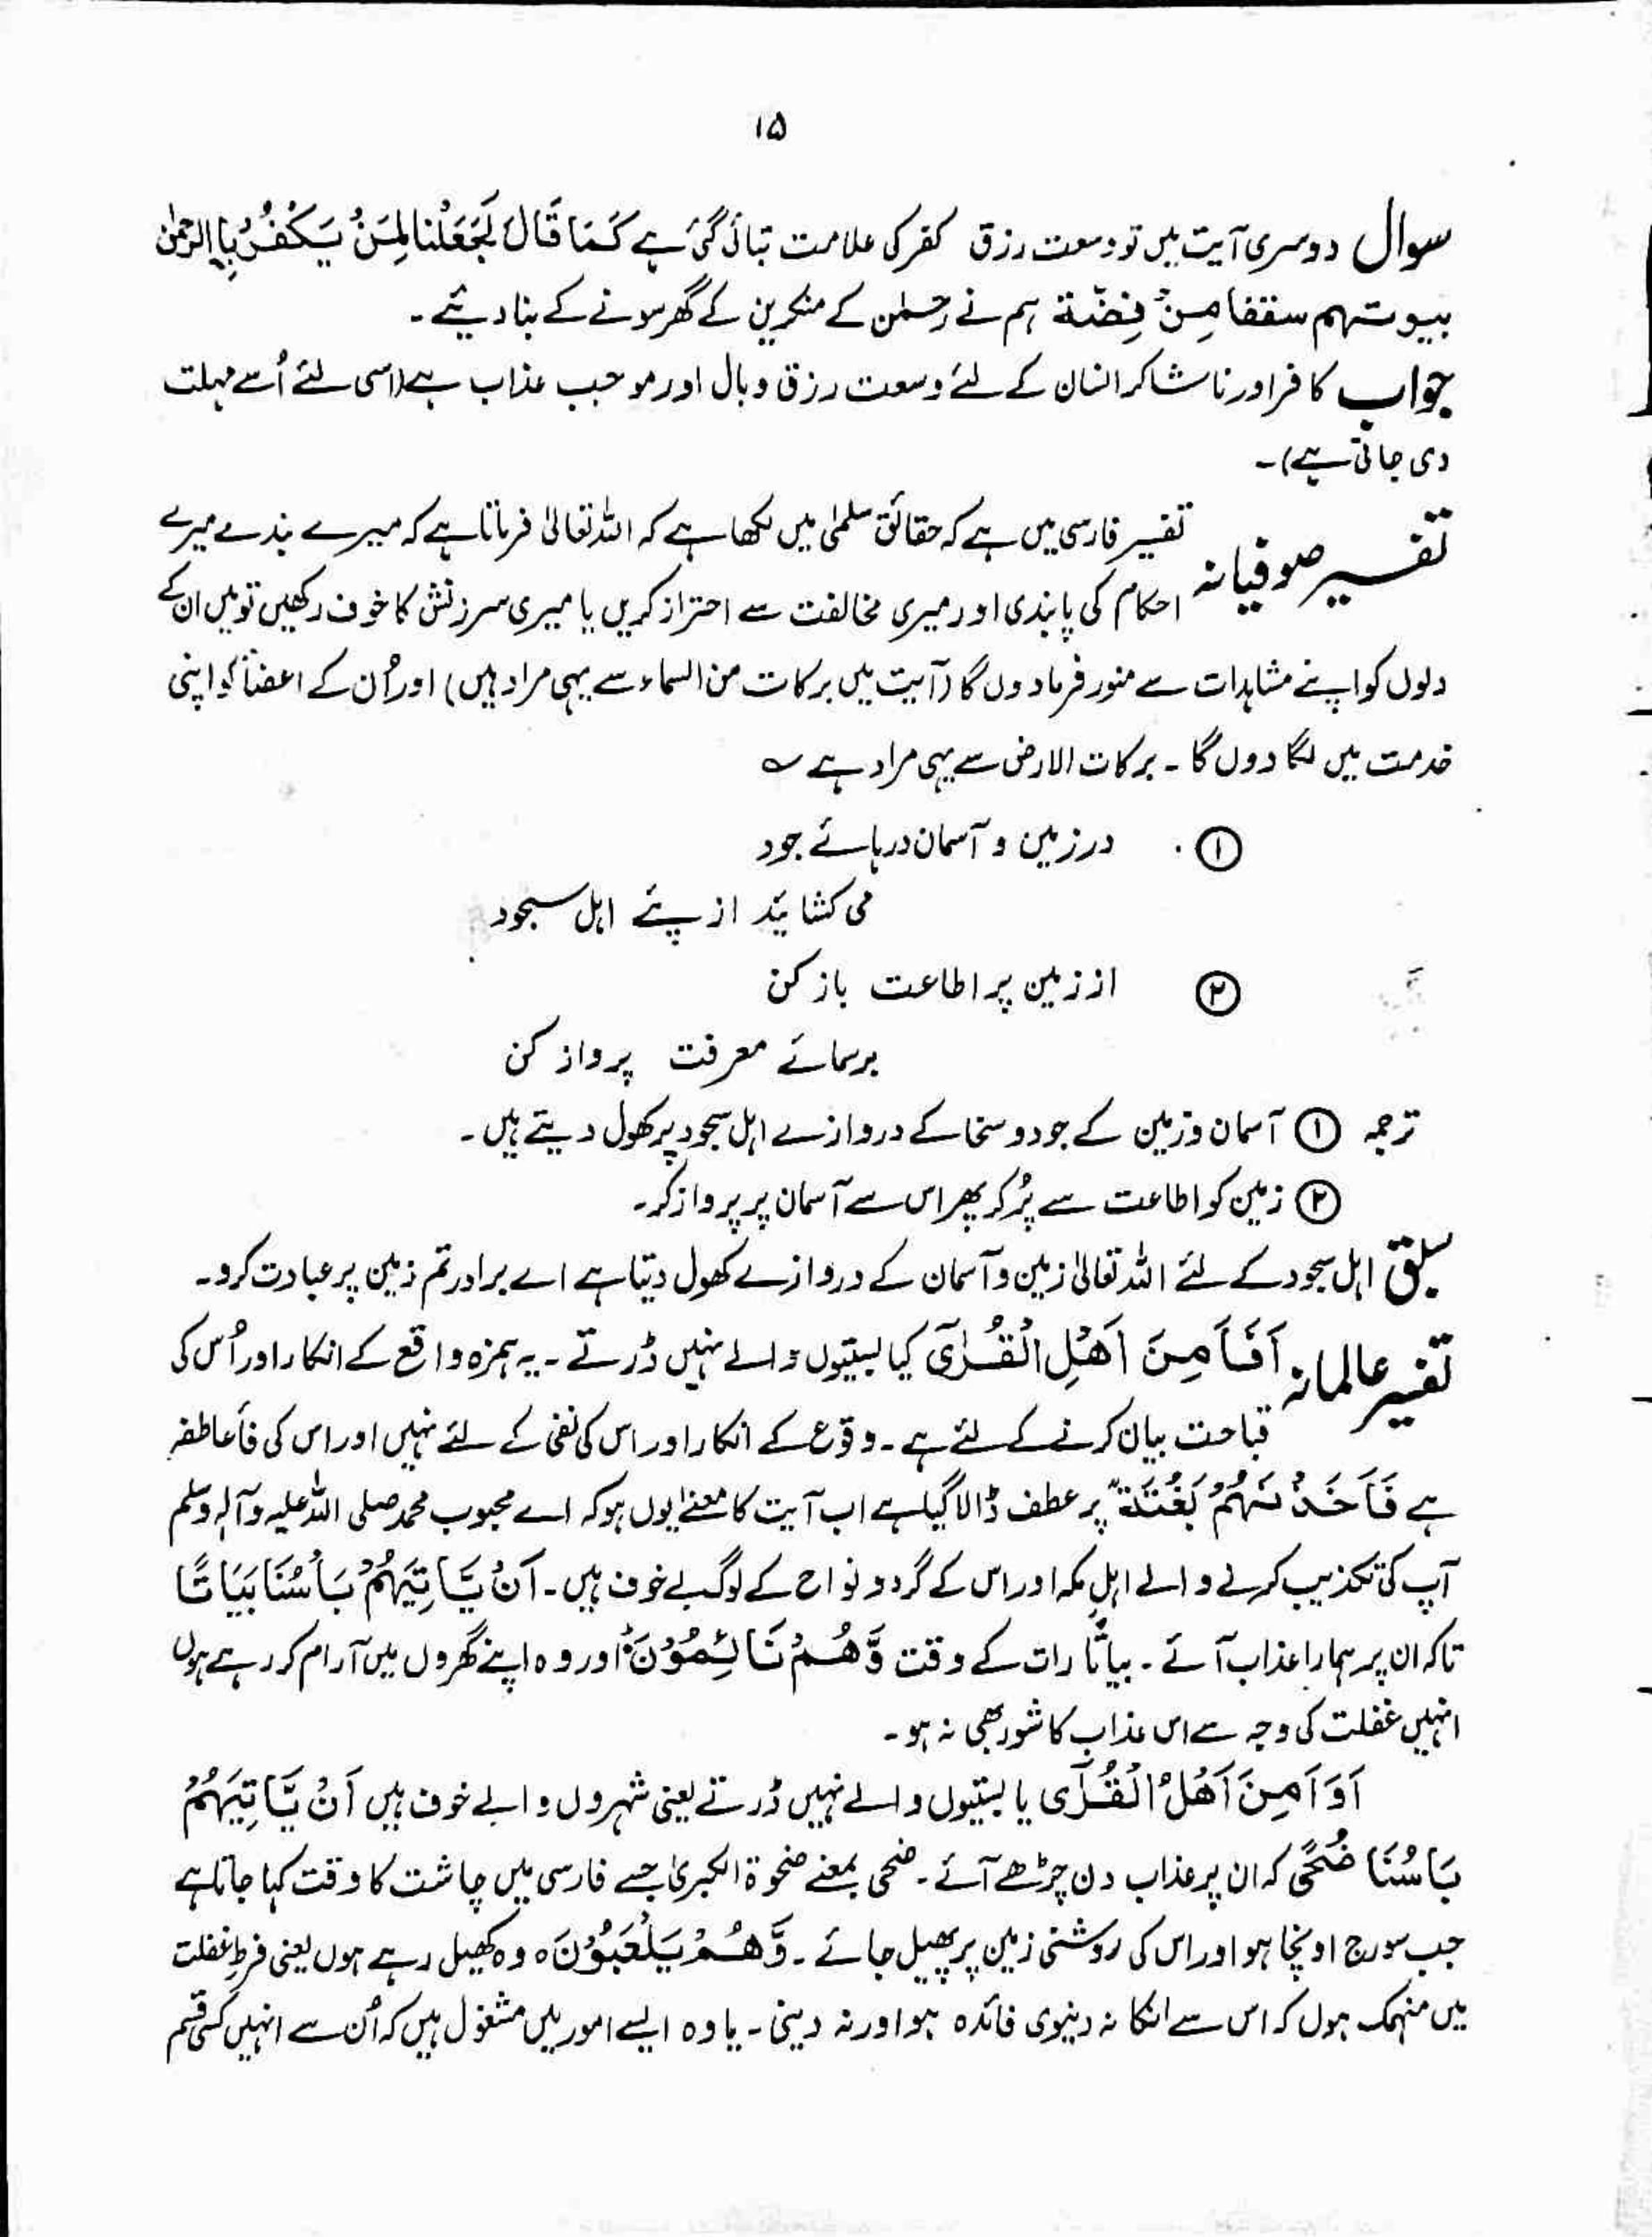 ۱۵
سوال دوسری آیت میں تو وسعت رزق کفر کی علامت بتائی گئی ہے کَمَا قَالَ لَجَعَلْنَا لِمَنْ یَکْفُرُ بِالرحمٰن
بیوتہم سقفا مِنْ فِضَّة ہم نے رحمٰن کے منکرین کے گھر سونے کے بنا دیئے ۔
جواب کافر اور ناشاکر انسان کے لئے وسعت رزق وبال اور موجب عذاب ہے (اسی لئے اُسے مہلت
دی جاتی ہے) ۔
تفسیر صوفیانہ تفسیر فارسی میں ہے کہ حقائق سلمٰی میں لکھا ہے کہ اللہ تعالیٰ فرماتا ہے کہ میرے بندے میرے
احکام کی پابندی اور میری مخالفت سے احتراز کریں یا میری سرزنش کا خوف رکھیں تو میں ان کے
دلوں کو اپنے مشاہدات سے منور فرما دوں گا (آیت میں برکات من السماء سے یہی مراد ہیں) اور اُن کے اعضأ کو اپنی
خدمت میں لگا دوں گا ۔ برکات الارض سے یہی مراد ہے ؎
① در زمیں و آسمان درہائے جود
می کشایئد از پئے اہل سجود
② از زمین پر اطاعت باز کن
برسمائے معرفت پرواز کن
ترجمہ ① آسمان وزمین کے جود و سخا کے دروازے اہل سجود پر کھول دیتے ہیں ۔
② زمین کو اطاعت سے پُر کر پھر اس سے آسمان پر پرواز کر۔
سبق اہل سجود کے لئے اللہ تعالیٰ زمین و آسمان کے دروازے کھول دیتا ہے اے برادر تم زمین پر عبادت کرو۔
تفسیر عالمانہ اَفَاَمِنَ اَھْلِ الْقُرٰۤی کیا بستیوں والے نہیں ڈرتے ۔ یہ ہمزہ واقع کے انکار اور اُس کی
قباحت بیان کرنے کے لئے ہے ۔ وقوع کے انکار اور اس کی نفی کے لئے نہیں اور اس کی فأ عاطفہ
ہے فَاَخَذْنٰہُمْ بَغْتَةً پر عطف ڈالا گیا ہے اب آیت کا معنےٰ یوں ہو کہ اے محبوب محمد صلی اللہ علیہ وآلہٖ وسلم
آپ کی تکذیب کرنے والے اہلِ مکہ اور اس کے گرد و نواح کے لوگ بے خوف ہیں ۔ اَنْ یَّاْتِیَہُمْ بَاْسُنَا بَیَاتًا
تاکہ ان پر ہمارا عذاب آئے ۔ بیاتًا رات کے وقت وَّھُمْ نَائِمُوْنَ اور وہ اپنے گھروں میں آرام کر رہے ہوں
انہیں غفلت کی وجہ سے اس عذاب کا شور بھی نہ ہو ۔
اَوَ اَمِنَ اَھْلُ الْقُرٰۤی یا بستیوں والے نہیں ڈرتے یعنی شہروں والے بے خوف ہیں اَنْ یَّاْتِیَہُمْ
بَاْسُنَا ضُحًی کہ ان پر عذاب دن چڑھے آئے ۔ ضحی بمعنے ضحوۃ الکبریٰ جسے فارسی میں چاشت کا وقت کہا جاتا ہے
جب سورج اونچا ہو اور اس کی روشنی زمین پر پھیل جائے ۔ وَّھُمْ یَلْعَبُوْنَ ہ وہ کھیل رہے ہوں یعنی فرطِ غفلت
میں منہمک ہوں کہ اس سے انکا نہ دنیوی فائدہ ہو اور نہ دینی ۔ یا وہ ایسے امور میں مشغول ہیں کہ اُن سے انہیں کسی قسم